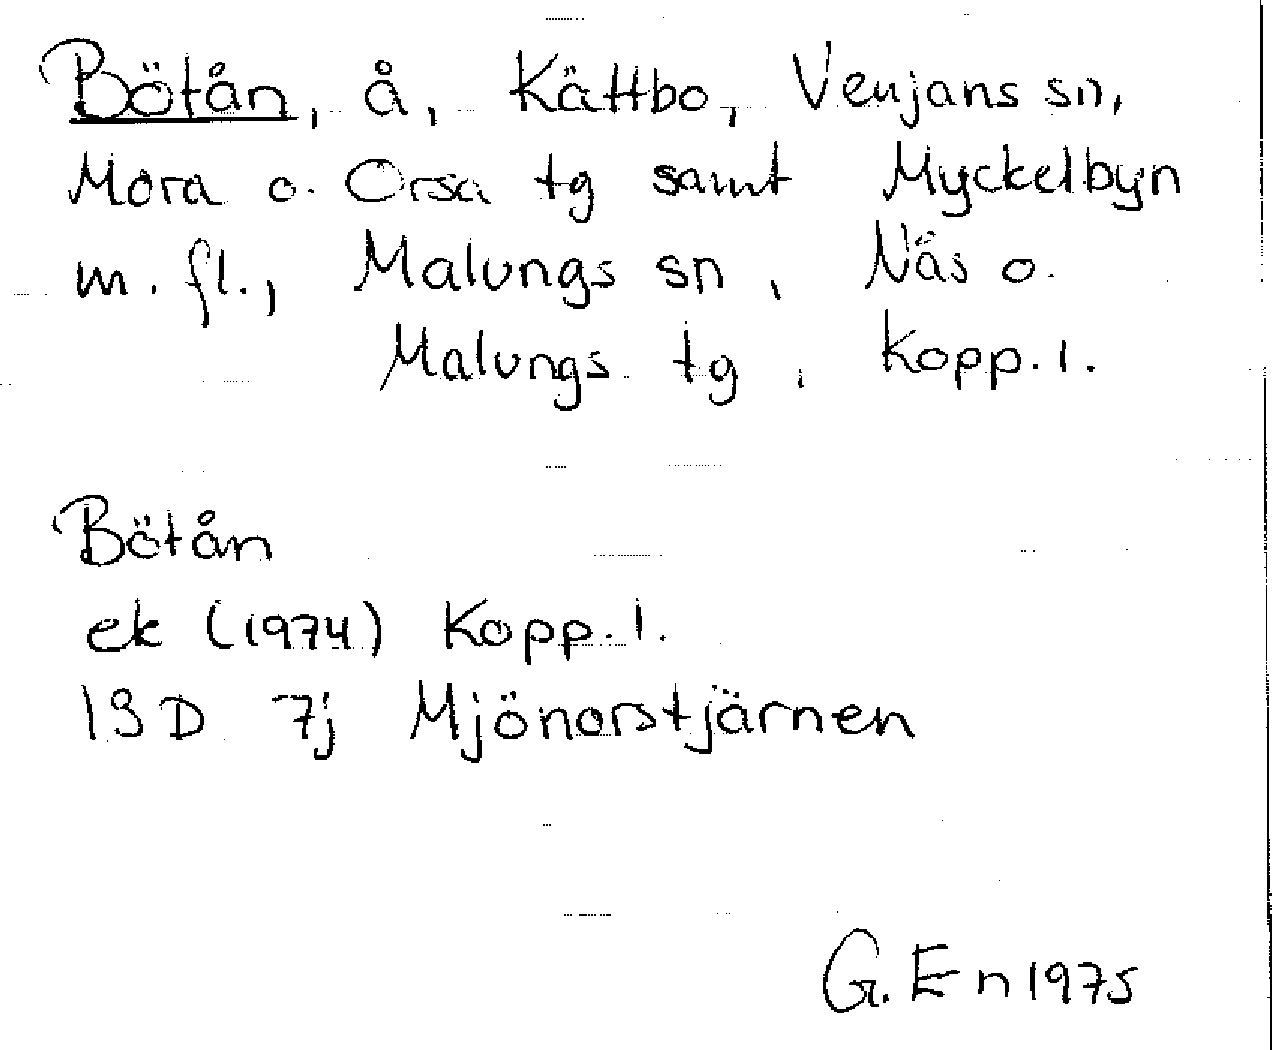 Bötån, å, Kättbo, Venjans sn,
Mora o. Orsa tg samt Myckelbyn
m. fl., Malungs sn, Näs o.
Malungs tg, Kopp. l.
Bötån
ek (1974) Kopp. l.
13D 7j Mjönorstjärnen
G. En 1975